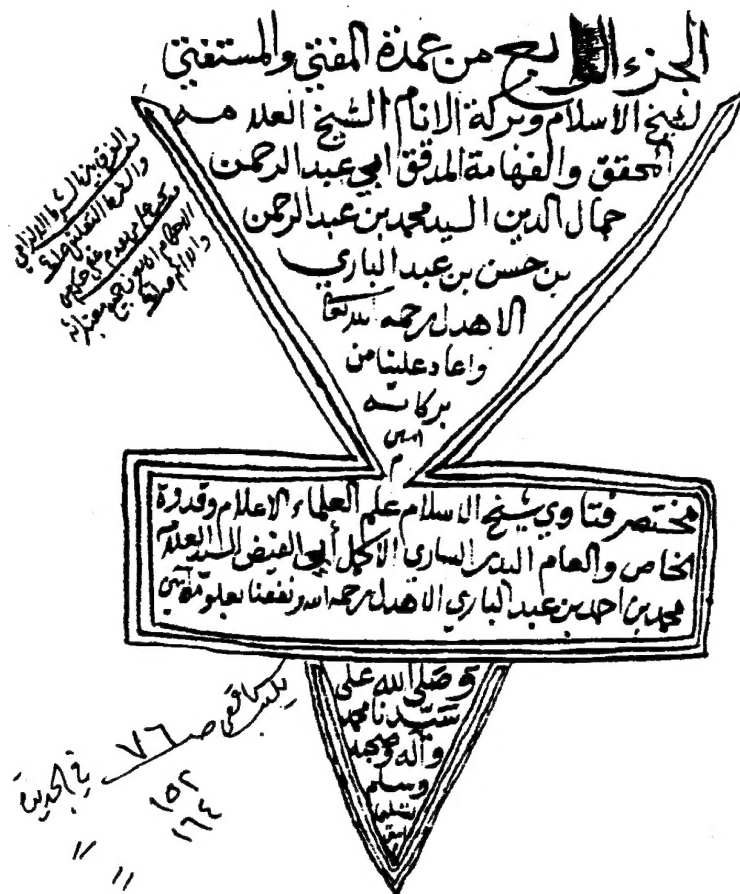 الجزء الرابع من عمدة المفتي والمستفتي
لشيخ الاسلام وبركة الانام الشيخ العلامه
المحقق والفهامة المدقق ابي عبد الرحمن
جمال الدين السيد محمد بن عبد الرحمن
بن حسن بن عبد الباري
الاهدل رحمه الله تعا
واعاد علينا من
بركاته
امين
م
مختصر فتاوي شيخ الاسلام علم العلماء الاعلام وقدوة
الخاص والعام البدر الساري الاكمل أبي الفيض السيد العلامة
محمد بن احمد بن عبد الباري الاهدل رحمه الله ونفعنا بعلومه آمين
وصلى الله على
سيدنا محمد
وآله وصحبه
وسلم
تسليما
الفرق بين الشرط الالزامي
والشرط التعليقي
ص ٧٦
١٥٢
١٦٤